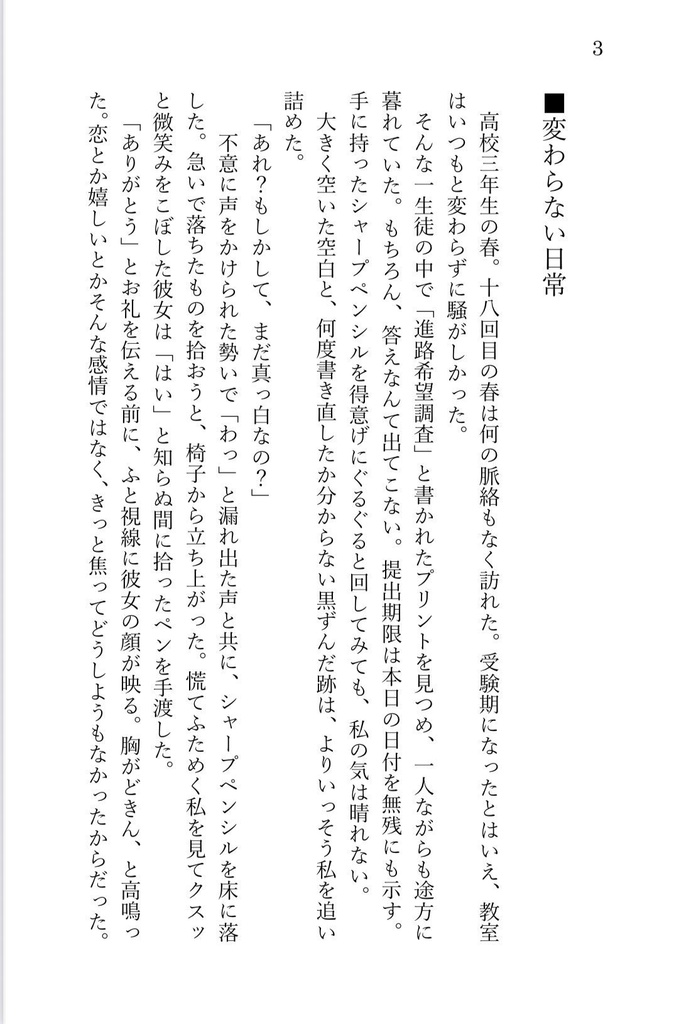 3
■変わらない日常
　高校三年生の春。十八回目の春は何の脈絡もなく訪れた。受験期になったとはいえ、教室
はいつもと変わらずに騒がしかった。
　そんな一生徒の中で「進路希望調査」と書かれたプリントを見つめ、一人ながらも途方に
暮れていた。もちろん、答えなんて出てこない。提出期限は本日の日付を無残にも示す。
手に持ったシャープペンシルを得意げにぐるぐると回してみても、私の気は晴れない。
　大きく空いた空白と、何度書き直したか分からない黒ずんだ跡は、よりいっそう私を追い
詰めた。
「あれ？もしかして、まだ真っ白なの？」
　不意に声をかけられた勢いで「わっ」と漏れ出た声と共に、シャープペンシルを床に落
した。急いで落ちたものを拾おうと、椅子から立ち上がった。慌てふためく私を見てクスッ
と微笑みをこぼした彼女は「はい」と知らぬ間に拾ったペンを手渡した。
「ありがとう」とお礼を伝える前に、ふと視線に彼女の顔が映る。胸がどきん、と高鳴っ
た。恋とか嬉しいとかそんな感情ではなく、きっと焦ってどうしようもなかったからだった。